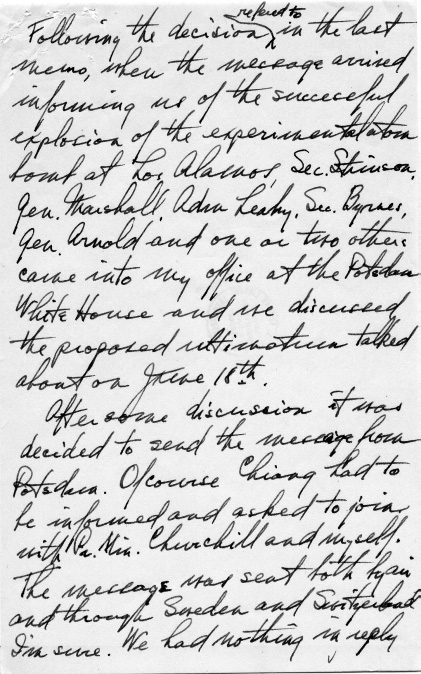 Following the decision refered to in the last
memo, when the message arrived
informing us of the successful
explosion of the experimental atom
bomb at Los Alamos, Sec. Stimson,
Gen. Marshall, Adm Leahy, Sec. Byrnes,
Gen. Arnold and one or two others
came into my office at the Potsdam
White House and we discussed
the proposed ultimatum talked
about on June 18th.
After some discussion it was
decided to send the message from
Potsdam. Ofcourse Chiang had to
be informed and asked to join
with Pr. Min. Churchill and myself.
The message was sent both by air
and through Sweden and Switzerland
I'm sure. We had nothing in reply